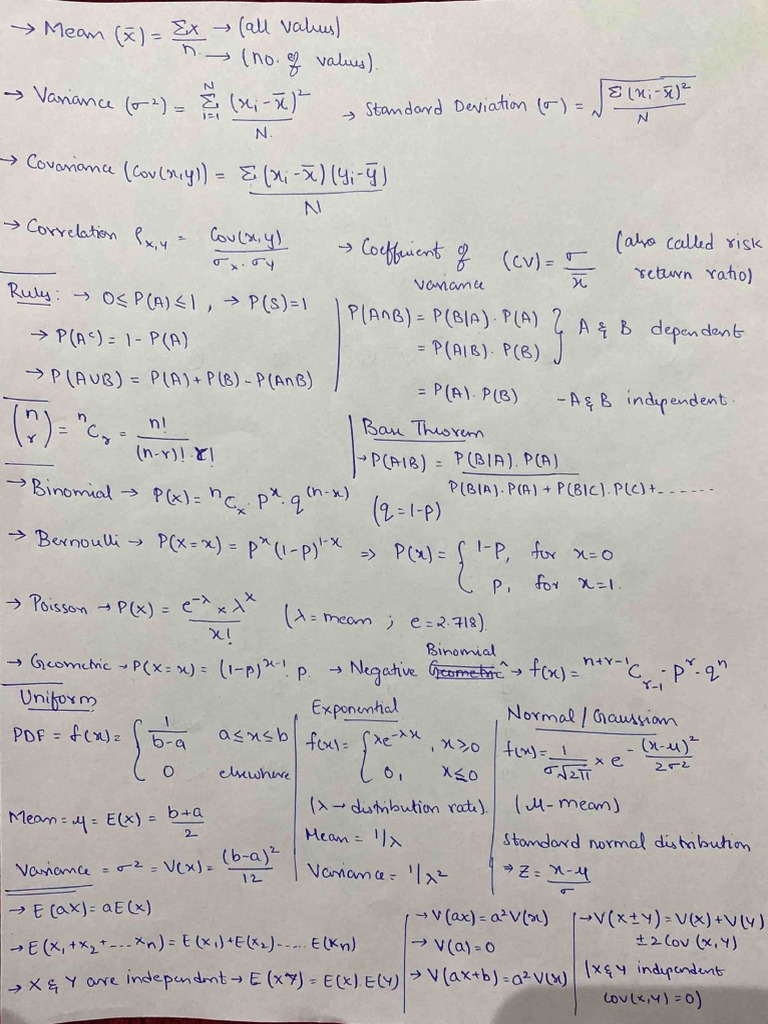 → Mean (x̄) = Σx/n → (all values)
→ (no. of values).
→ Variance (σ²) = Σ_{i=1}^{N} (xi - x̄)²/N. → Standard Deviation (σ) = √(Σ(xi - x̄)²/N)
→ Covariance (Cov(x,y)) = Σ(xi - x̄)(yi - ȳ)/N
→ Correlation ρx,y = Cov(x,y)/σx.σy → Coefficient of variance (CV) = σ/x̄ (also called risk return ratio)
Rules: → 0≤P(A)≤1, → P(S)=1
→ P(Aᶜ) = 1 - P(A)
→ P(A∪B) = P(A)+P(B) - P(A∩B)
P(A∩B) = P(B|A). P(A) } A & B dependent
= P(A|B). P(B)
= P(A). P(B) - A & B independent.
(n r) = ⁿCr = n!/(n-r)!.r!
Base Theorem
→ P(A|B) = P(B|A). P(A)/P(B|A).P(A) + P(B|C).P(C)+.......
→ Binomial → P(x) = ⁿCx. pˣ. q⁽ⁿ⁻ˣ⁾ (q = 1-p)
→ Bernoulli → P(X=x) = pˣ(1-p)¹⁻ˣ ⇒ P(x) = { 1-p, for x=0
p, for x=1.
→ Poisson → P(x) = e^{-λ} × λˣ/x! (λ = mean ; e = 2.718).
→ Geometric → P(X=x) = (1-p)ˣ⁻¹. p. → Negative Binomial → f(x) = ⁿ⁺ʳ⁻¹C_{r-1}. pʳ. qⁿ
Uniform
PDF = f(x) = { 1/b-a a≤x≤b
0 elsewhere
Mean = μ = E(x) = b+a/2
Variance = σ² = V(x) = (b-a)²/12
Exponential
f(x) = { λe^{-λx}, x≥0
0, x≤0
(λ → distribution rate).
Mean = 1/λ
Variance = 1/λ²
Normal/Gaussian
f(x) = 1/σ√2π × e^{-(x-μ)²/2σ²}
(μ - mean)
Standard normal distribution
→ Z = x-μ/σ
→ E(ax) = aE(x)
→ E(x₁+x₂+....xn) = E(x₁)+E(x₂)..... E(xn)
→ X & Y are independent → E(XY) = E(x).E(y)
→ V(ax) = a²V(x)
→ V(a) = 0
→ V(ax+b) = a²V(x)
→ V(x±y) = V(x)+V(y)
±2Cov(x,y)
(x & y independent
Cov(x,y) = 0)